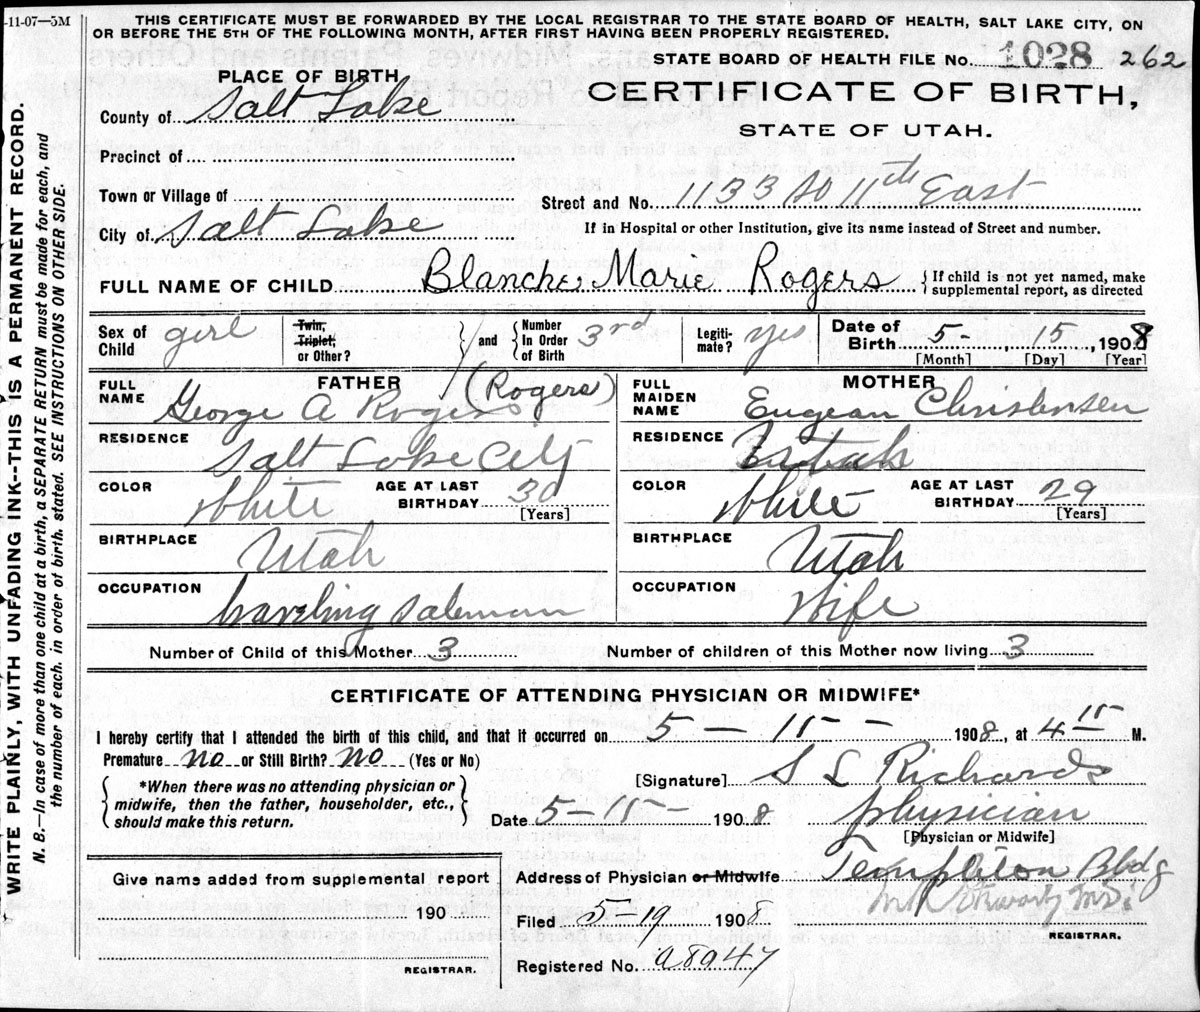 -11-07—5M
THIS CERTIFICATE MUST BE FORWARDED BY THE LOCAL REGISTRAR TO THE STATE BOARD OF HEALTH, SALT LAKE CITY, ON
OR BEFORE THE 5TH OF THE FOLLOWING MONTH, AFTER FIRST HAVING BEEN PROPERLY REGISTERED.
STATE BOARD OF HEALTH FILE No. 1028 262
PLACE OF BIRTH
CERTIFICATE OF BIRTH,
STATE OF UTAH.
County of Salt Lake
Precinct of
Town or Village of
Street and No. 1133 So 11th East
City of Salt Lake
If in Hospital or other Institution, give its name instead of Street and number.
FULL NAME OF CHILD Blanche Marie Rogers
{If child is not yet named, make supplemental report, as directed
Sex of Child girl
Twin, Triplet, or Other?
and
Number In Order of Birth 3rd
Legiti-mate? yes
Date of Birth 5 - 15, 1908
[Month] [Day] [Year]
FATHER
FULL NAME George A Rogers (Rogers)
RESIDENCE Salt Lake City
COLOR White
AGE AT LAST BIRTHDAY 30
[Years]
BIRTHPLACE Utah
OCCUPATION traveling salesman
MOTHER
FULL MAIDEN NAME Eugean Christensen
RESIDENCE
COLOR White
AGE AT LAST BIRTHDAY 29
[Years]
BIRTHPLACE Utah
OCCUPATION Wife
Number of Child of this Mother 3
Number of children of this Mother now living 3
CERTIFICATE OF ATTENDING PHYSICIAN OR MIDWIFE*
I hereby certify that I attended the birth of this child, and that it occurred on 5 - 15 - 1908, at 4 M.
Premature no or Still Birth? no (Yes or No)
*When there was no attending physician or midwife, then the father, householder, etc., should make this return.
[Signature] S L Richards
Date 5-15- 1908
physician
[Physician or Midwife]
Address of Physician or Midwife Templeton Bldg
Give name added from supplemental report
190
REGISTRAR.
Filed 5-19 1908
M.D.
REGISTRAR.
Registered No. a8947
WRITE PLAINLY, WITH UNFADING INK--THIS IS A PERMANENT RECORD.
N. B.—In case of more than one child at a birth, a SEPARATE RETURN must be made for each, and
the number of each, in order of birth, stated. SEE INSTRUCTIONS ON OTHER SIDE.